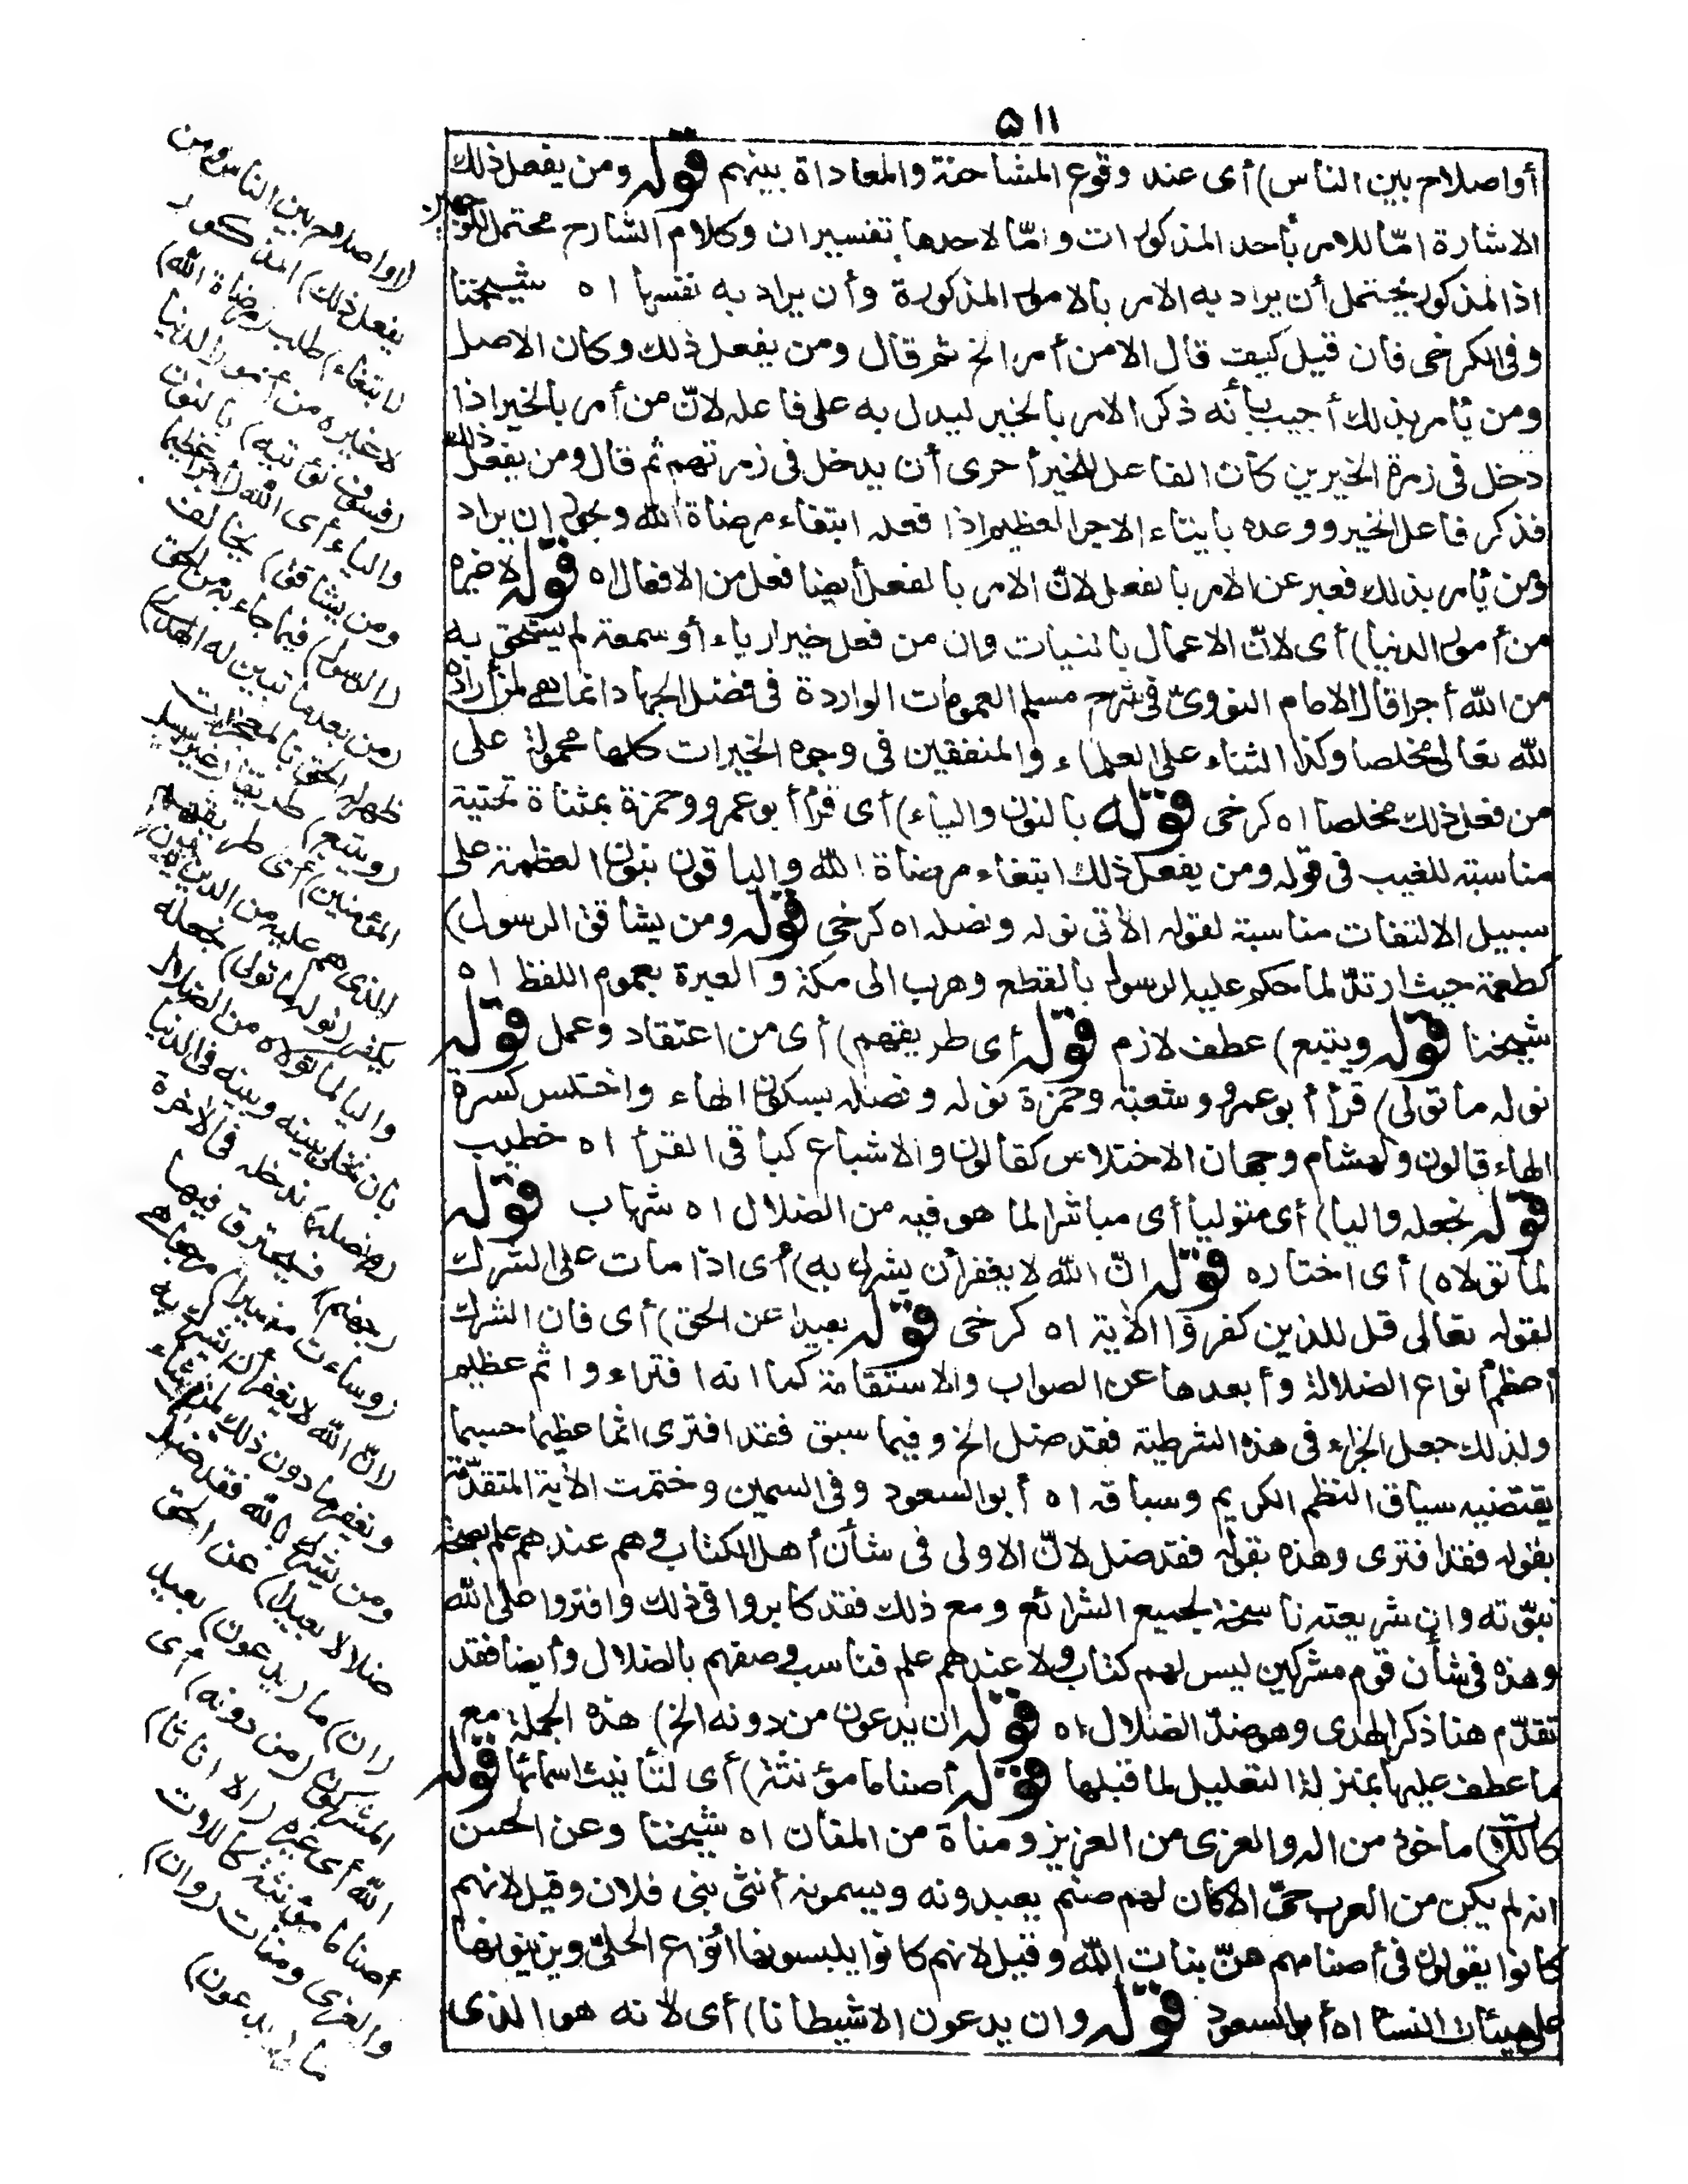 ٥١١
أو اصلاح بين الناس) أى عند وقوع المشاحنة والمعاداة بينهم قوله ومن يفعل ذلك
الاشارة امّا للامر بأحد المذكورات وامّا لاحدها تفسيران وكلام الشارح محتمل للوجهين
اذ المذكور يحتمل أن يراد به الامر بالامور المذكورة وأن يراد به نفسها اه شيخنا
وفى الكرخى فان قيل كيف قال الا من أمر الخ ثم قال ومن يفعل ذلك وكان الاصل
ومن يأمر بذلك أجيب بأنه ذكر الامر بالخير ليدل به على فاعله لانّ من أمر بالخير اذا
دخل فى زمرة الخيرين كان الفاعل للخير أحرى أن يدخل فى زمرتهم ثم قال ومن يفعل ذلك
فذكر فاعل الخير ووعده بايتاء الاجر العظيم اذا فعله ابتغاء مرضاة الله ويجوز ان يراد
ومن يأمر بذلك فعبر عن الامر بالفعل لانّ الامر بالفعل أيضا فعل من الافعال اه قوله لا غيره
من أمور الدنيا) أى لانّ الاعمال بالنيات وان من فعل خيرا رياء أو سمعة لم يستحق به
من الله أجرا قال الامام النووىّ فى شرح مسلم العمومات الواردة فى فضل الجهاد انما هى لمن أراده
لله تعالى مخلصا وكذا الثناء على العلماء والمنفقين فى وجوه الخيرات كلها محمولة على
من فعل ذلك مخلصا اه كرخى قوله بالنون والياء) أى قرأ أبو عمرو وحمزة بمثناة تحتية
مناسبة للغيب فى قوله ومن يفعل ذلك ابتغاء مرضاة الله والباقون بنون العظمة على
سبيل الالتفات مناسبة لقوله الآتى نوله ونصله اه كرخى قوله ومن يشاقق الرسول)
كطعمة حيث ارتدّ لما حكم عليه الرسول بالقطع وهرب الى مكة والعبرة بعموم اللفظ اه
شيخنا قوله ويتبع) عطف لازم قوله أى طريقهم) أى من اعتقاد وعمل قوله
نوله ما تولى) قرأ أبو عمرو وشعبة وحمزة نوله ونصله بسكون الهاء واختلس كسرة
الهاء قالون ولهشام وجهان الاختلاس كقالون والاشباع كباقى القرأ اه خطيب
قوله نجعله واليا) أى متوليا أى مباشرا لما هو فيه من الضلال اه شهاب قوله
لما تولاه) أى اختاره قوله انّ الله لا يغفر أن يشرك به) أى اذا مات على الشرك
لقوله تعالى قل للذين كفروا الآية اه كرخى قوله بعيدا عن الحق) أى فان الشرك
أعظم أنواع الضلالة وأبعدها عن الصواب والاستقامة كما انه افتراء واثم عظيم
ولذلك جعل الجزاء فى هذه الشرطية فقد ضل الخ وفيما سبق فقد افترى اثما عظيما حسبما
يقتضيه سياق النظم الكريم وسباقه اه أبو السعود وفى السمين وختمت الآية المتقدّمة
بقوله فقد افترى وهذه بقوله فقد ضل لانّ الاولى فى شأن أهل الكتاب وهم عندهم علم بصحة
نبوّته وان شريعته ناسخة لجميع الشرائع ومع ذلك فقد كابروا فى ذلك وافتروا على الله
وهذه فى شأن قوم مشركين ليس لهم كتاب ولا عندهم علم فناسب وصفهم بالضلال وأيضا فقد
تقدّم هنا ذكر الهدى وهو ضدّ الضلال اه قوله ان يدعون من دونه الخ) هذه الجملة مع
ما عطف عليها بمنزلة التعليل لما قبلها قوله أصناما مؤنثة) أى لتأنيث اسمائها قوله
كاللات) مأخوذ من اله والعزى من العزيز ومناة من المنان اه شيخنا وعن الحسن
انه لم يكن من العرب حىّ الا كان لهم صنم يعبدونه ويسمونه أنثى بنى فلان وقيل لانهم
كانوا يقولون فى أصنامهم هنّ بنات الله وقيل لانهم كانوا يلبسونها أنواع الحلىّ ويزينونها
على هيئات النسا اه أبو السعود قوله وان يدعون الا شيطانا) أى لانه هو الذى
(أو اصلاح بين الناس ومن
يفعل ذلك) المذكور
(ابتغاء) طلب (مرضاة الله)
لا غيره من أمور الدنيا
(فسوف نؤتيه) بالنون
والياء أى الله (أجرا عظيما
ومن يشاقق) يخالف
(الرسول) فيما جاء به من الحق
(من بعد ما تبين له الهدى)
ظهر له الحق بالمعجزات
(ويتبع) طريقا (غير سبيل
المؤمنين) أى طريقهم
الذى هم عليه من الدين بأن
يكفر (نوله ما تولى) نجعله
واليا لما تولاه من الضلال
بأن نخلى بينه وبينه فى الدنيا
(ونصله) ندخله فى الآخرة
(جهنم) فيحترق فيها
(وساءت مصيرا) مرجعا هى
(انّ الله لا يغفر أن يشرك به
ويغفر ما دون ذلك لمن يشاء
ومن يشرك بالله فقد ضل
ضلالا بعيدا) عن الحق
(ان) ما (يدعون) يعبد
المشركون (من دونه) أى
الله أى غيره (الا اناثا)
أصناما مؤنثة كاللات
والعزى ومنات (وان)
ما (يدعون)